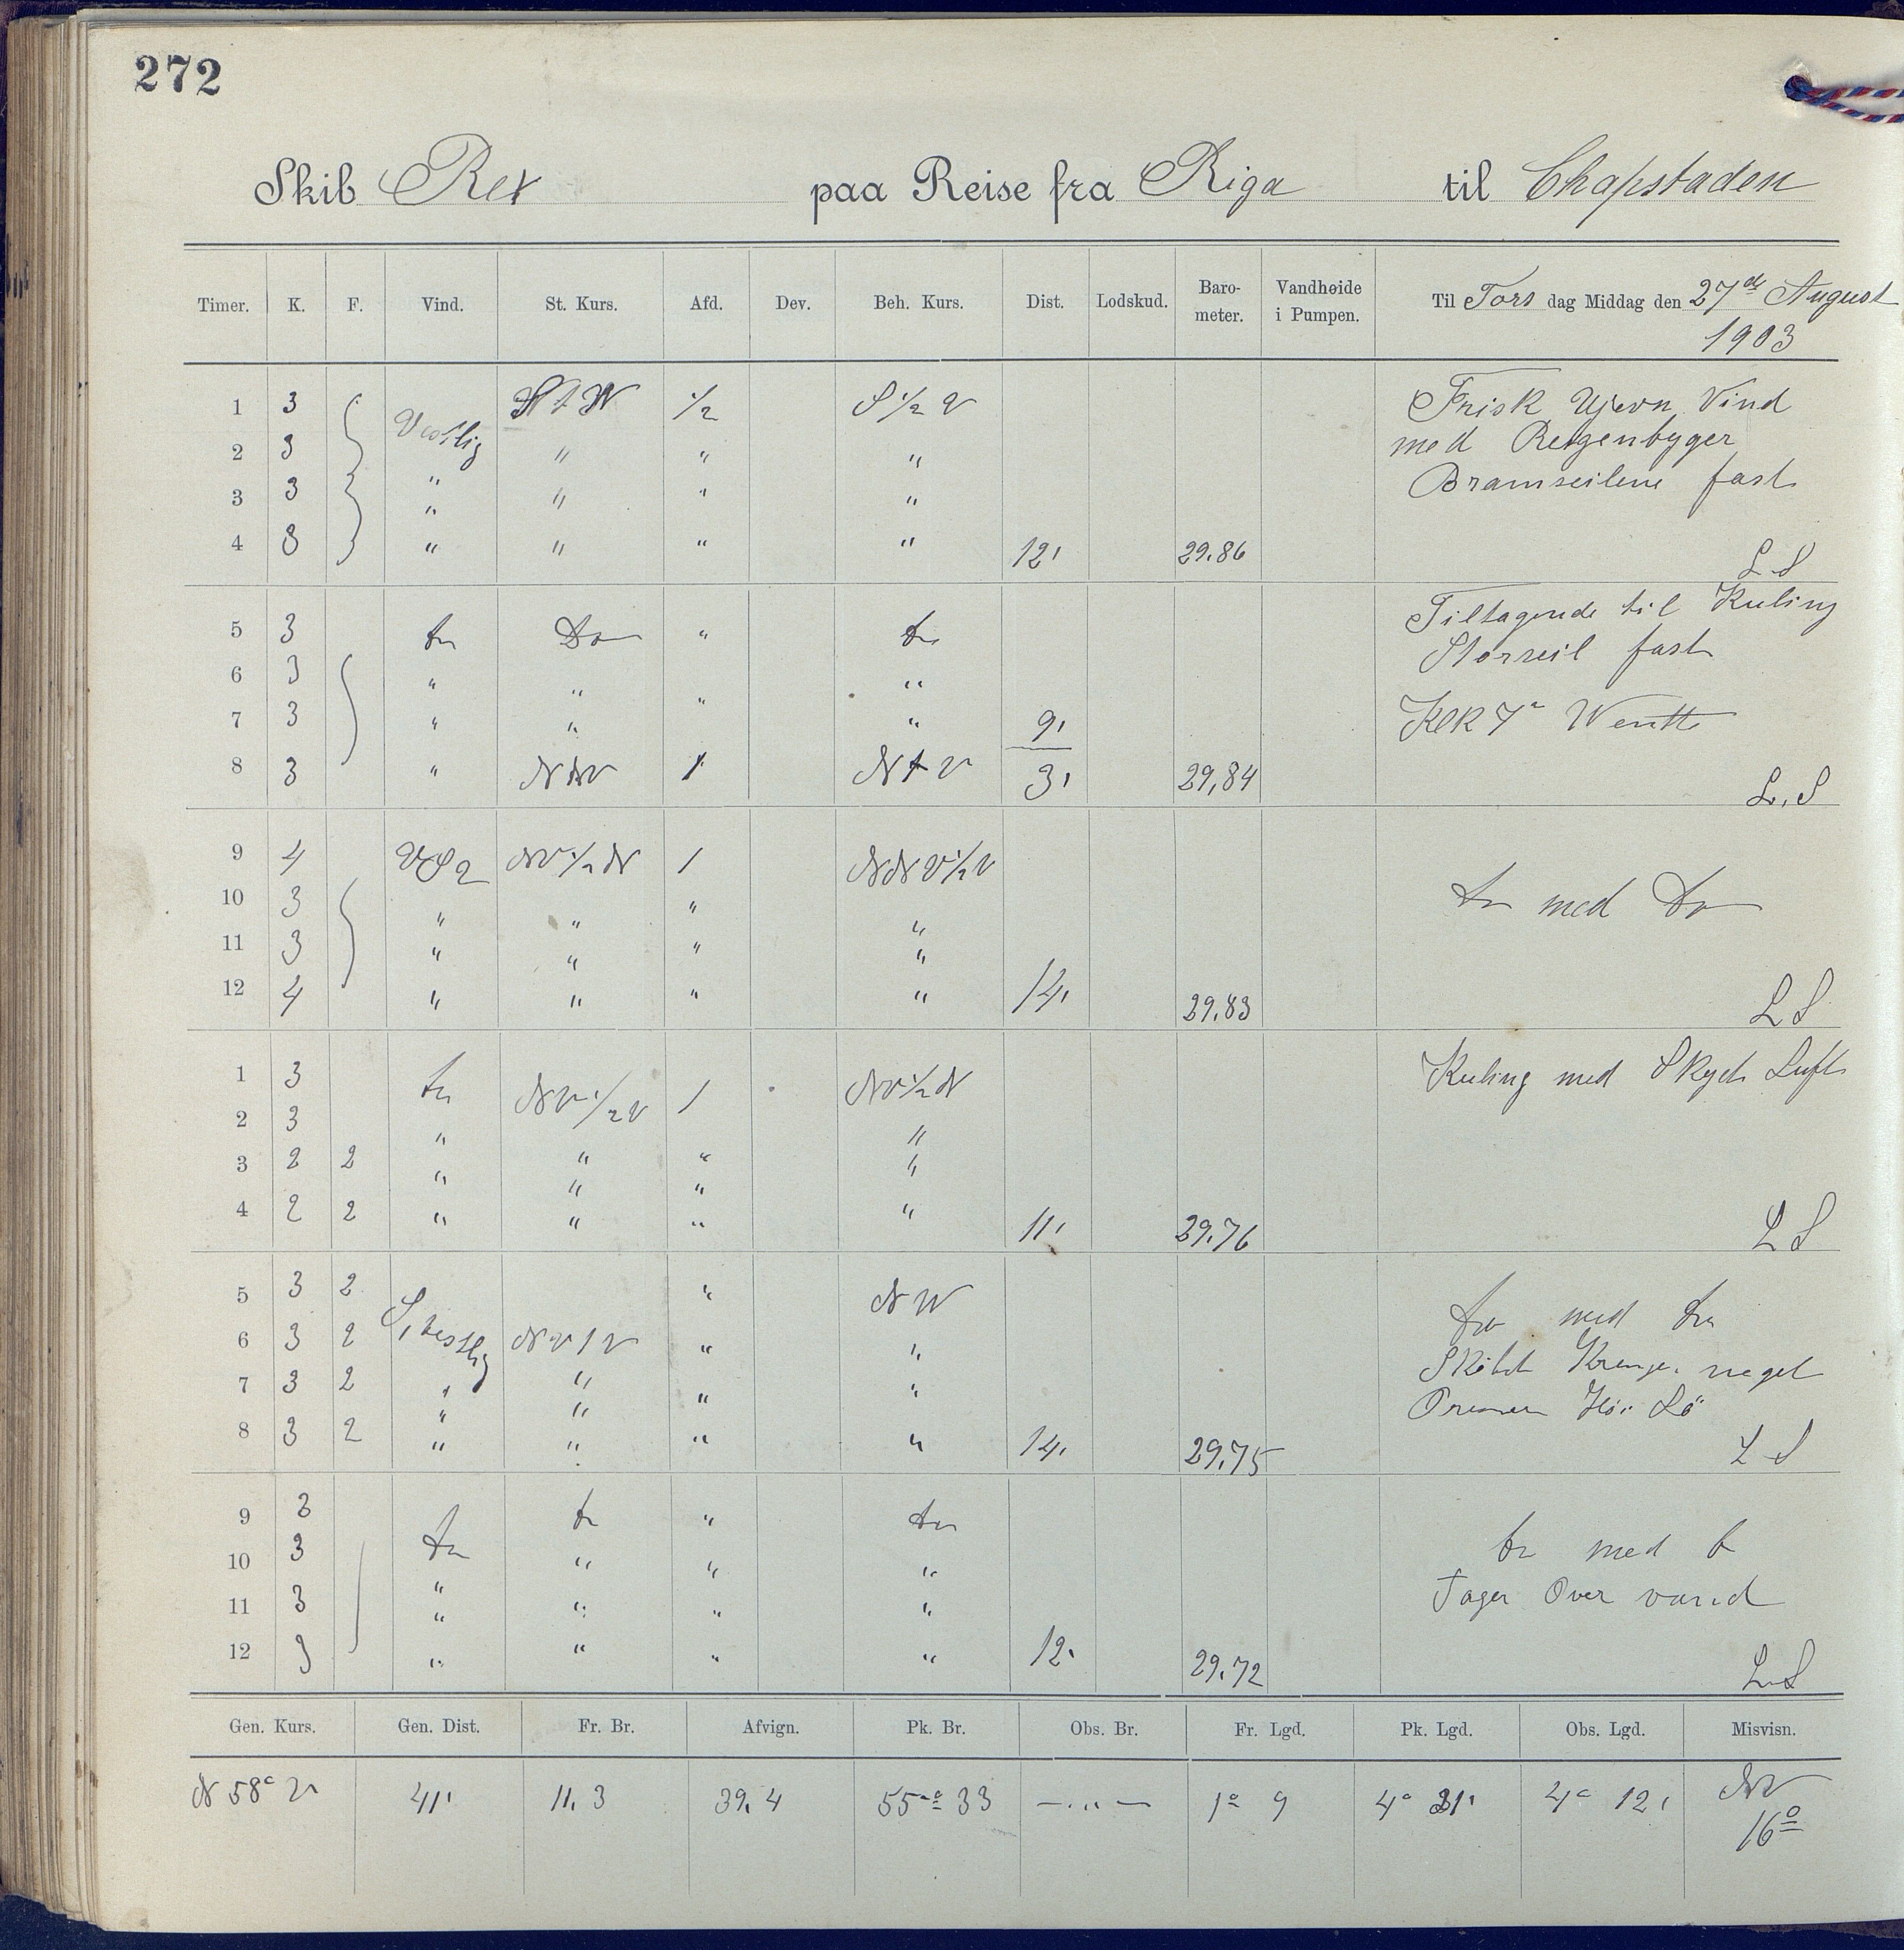 272
Skib Rex paa Reise fra Riga til Chapstaden
Timer. K. F. Vind. St. Kurs. Afd. Dev. Beh. Kurs. Dist. Lodskud. Baro-meter. Vandhøide i Pumpen. Til Tors dag Middag den 27de August
1903
1 3 Vestlig 1/2 S 1/2 V Frisk Ujevn Vind
2 3 " " " " med Regenbyger
3 3 " " " " Bramseilene fast
4 3 " " " " 12' 29.86 L S
5 3 do Do " do Tiltagende til Kuling
6 3 " " " " Storseil fast
7 3 " " " 9' Klk 7 Wentte
8 3 " 1 N t V 3' 29,84 L. S
9 4 NV 1/2 N 1 NNV 1/2 V
10 3 " " " " do med Do
11 3 " " " "
12 4 " " " " 14' 29.83 L S
1 3 do NV 1/2 V 1 NV 1/2 N Kuling med Skyet Luft
2 3 " "
3 2 2 " " " "
4 2 2 " " " " 11' 29.76 L S
5 3 2 " NW do med do
6 3 2 NV t V " "
7 3 2 " " " "
8 3 2 " " " " 14' 29.75 L S
9 3 do do " do
10 3 " " " do med do
11 3 " " " " Tager Over vand
12 3 " " " " 12' 29.72 L. S
Gen. Kurs. Gen. Dist. Fr. Br. Afvign. Pk. Br. Obs. Br. Fr. Lgd. Pk. Lgd. Obs. Lgd. Misvisn.
N 58° V 41' 11,3 39,4 55° 33 — " — 1° 9 4° 21' 4° 12' NV
16°